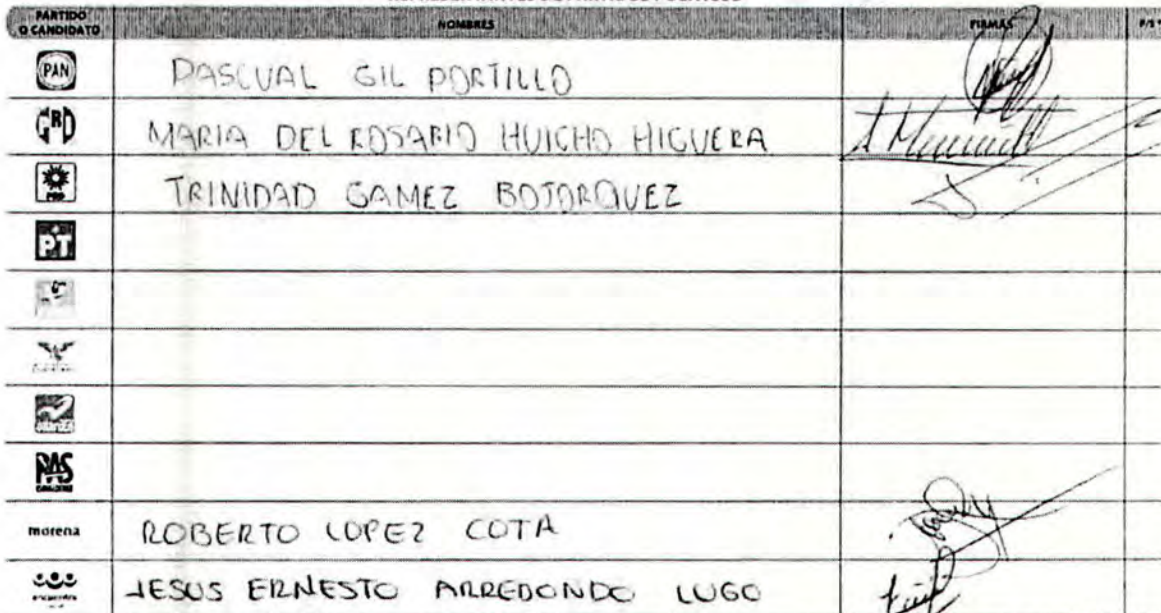 PARTIDO O CANDIDATO NOMBRES FIRMAS
PAN PASCUAL GIL PORTILLO
PRI MARIA DEL ROSARIO HUICHO HIGUERA
PRD TRINIDAD GAMEZ BOJORQUEZ
PT
PAS
morena ROBERTO LOPEZ COTA
encuentro JESUS ERNESTO ARREDONDO LUGO